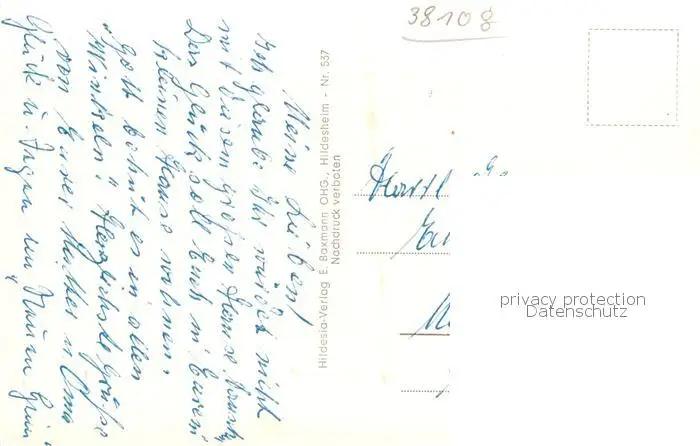 3810g
Meine Lieben!
Ich glaube Ihr würdet nicht
mit diesem großen Hause
Das Glück soll Euch in Eurem
kleinen Hause wohnen.
Gott wohnt es in allen
Winkeln." Herzlichste Grüße
von Eurer Mutter u. Oma
Glück u. Segen im Neuen
Hildesia-Verlag E. Baxmann OHG., Hildesheim - Nr. 537
Nachdruck verboten
privacy protection
Datenschutz